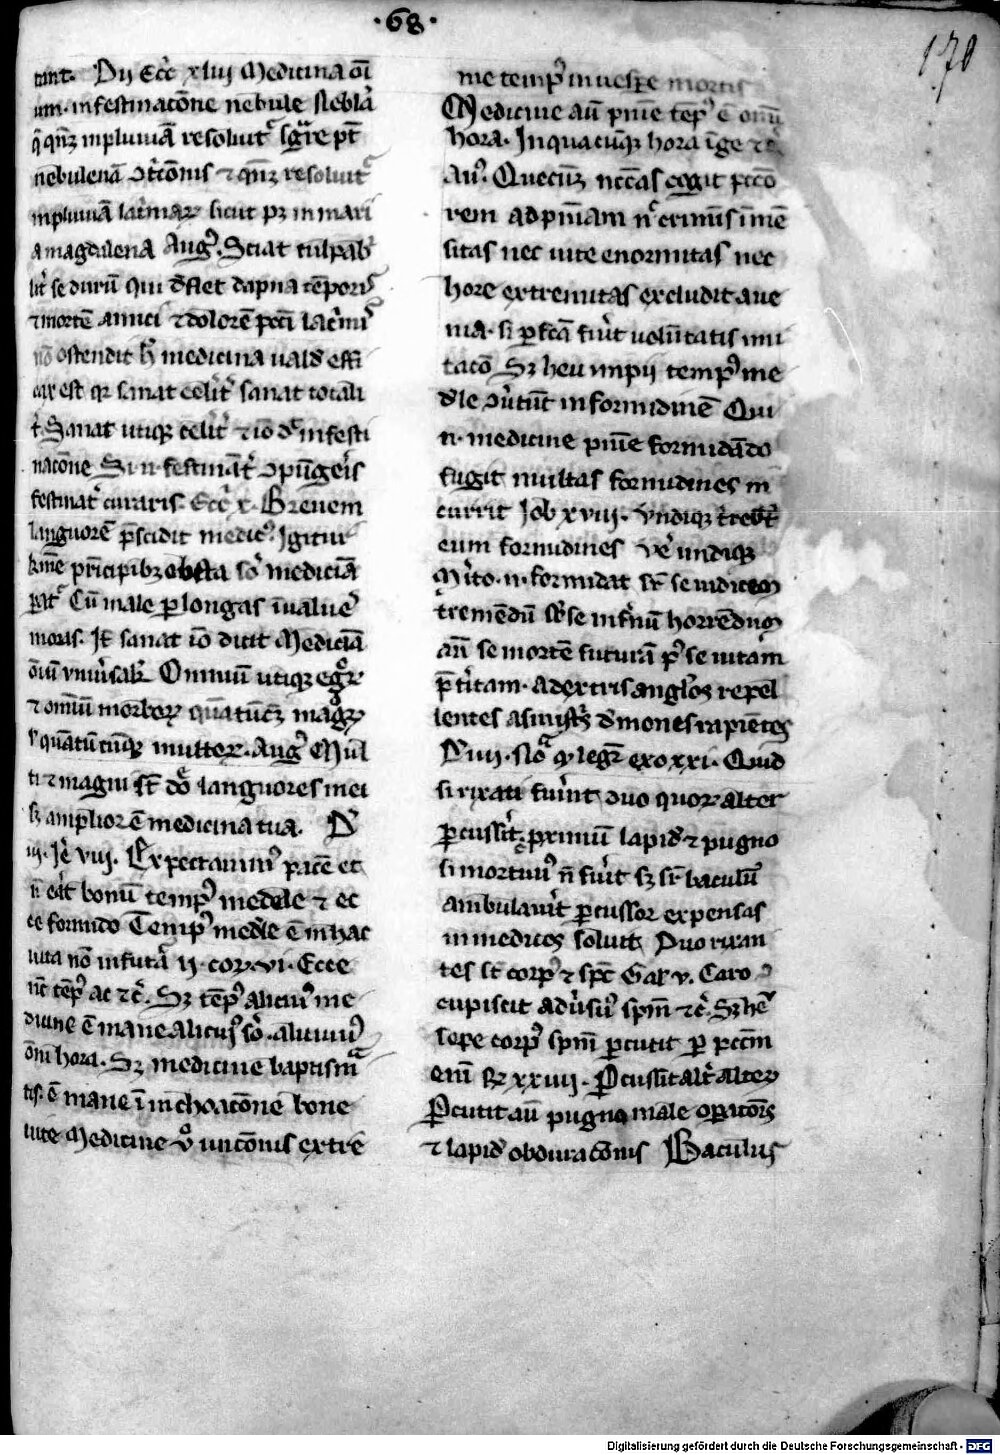 ·68·
170
tant. Dij Eccͨ xliij Medicina oī
um· in festinacōne nebule Nebla
q̄ qn̄ꝫ in pluuiā resoluit᷑ sgͣre pt̄
nebulenā ꝯtͥcōnis ⁊ qn̄ꝫ resoluit᷑
in pluuiā lacͥmaꝝ sicut pꝫ in mari
a magdalena Augꝰ. Sciat culpabͥ
lit̓ se durū qui deflet dāpna tēporꝭ
⁊ mortē amici ⁊ dolorē pctī lacͥmͥ
nō ostendit hͨ medicina uald̓ effi
cax est qꝛ sanat celit̓ sanat totali
t̓ Sanat utiqꝫ celit̓ ⁊ iō dͥ in festi
nacōne Si n̄ festinātͥ ꝯpungeris
festinat̓ curaris. Eccͨ x. Breuem
languorē p̄scidit medicꝰ. Igitur
Cū male ꝑ longas īualue̓
moras. Itē sanat iō dicit Medicīā
oīuͫ vniu̓salē Omniū utiqꝫ egroꝝ
⁊ omniū morboꝝ quātūcūqꝫ magͦꝝ
⁊ quātūcūqꝫ multoꝝ. Augꝰ Mul
ti ⁊ magni st̄ dn̄e languores mei
sꝫ amplior ē medicina tua. D
iij. Jēr viij. Expectauimꝰ pacē et
nō erat bonū tempꝰ medele ⁊ ec
ce formido Tempꝰ medele ē in hac
uita nō in futurͣ ij. cor. vi. Ecce
nūc tēpꝰ ac ⁊c̓. Sꝫ tēpꝰ alicuiꝰ me
dicine ē mane alicuiꝰ so̓. alicuiꝰ
om̄i hora. Sꝫ medicine baptismͣ
tis. ē mane ī inchoacōne bone
uite Medicine vͦ unctōnis extre
me tempꝰ in uespe mortis
Medicine aūt pnīe tēpꝰ ē omni
hora. In quacūqꝫ hora īge ⁊c̓
Auͥ. Quecūqꝫ nccitas cogit pctō
rem ad pn̄iam nͨ criminis īmē
sitas nec uite enormitas nec
hore extremitas excludit a ue
nia. si ꝑfcā fu̓it voluntatis mu
tacō Sꝫ heu impij tempꝰ me
dele ꝯu̓tūt in formidinē Qui
n. medicine pnīe formidādo
fugit multas formidines in
currit Job xviij. vndiqꝫ t̓rebt̄
eum formidines ve̓ undiqꝫ
Mͥto. n. formidat sr̄ se iudicem
tremēdū sb̓ se infͥnū horrēdum
an̄ se mortē futurā pꝰ se uitam
p̄t̓itam. a dextris angłos repel
lentes a sinistꝭ dͤmones rapiētes
D iiij. Noͣ ꝙ leg̓ exo xxi. Quid
si rixati fu̓int duo quoꝝ alter
ꝑcussit ꝓximū lapid̓ ⁊ pugno
si mortuꝰ nō fu̓it sꝫ sr̄ baculū
ambulau̓it ꝑcussor expensas
in medicos soluit Duo rixan
tes st̄ corpꝰ ⁊ spc̄ Gal v. Caro ꝯ
cupiscit adu̓sus spm̄ ⁊c̓. Sꝫ heu
sepe corpꝰ spm̄ ꝑcutit ꝑ pctm̄
eni xxiiij. Pcussit alt̓ alteꝝ
Pcutit aūt pugno male oꝑatōis
⁊ lapid̓ obduracōnis Baculus
Digitalisierung gefördert durch die Deutsche Forschungsgemeinschaft - DFG